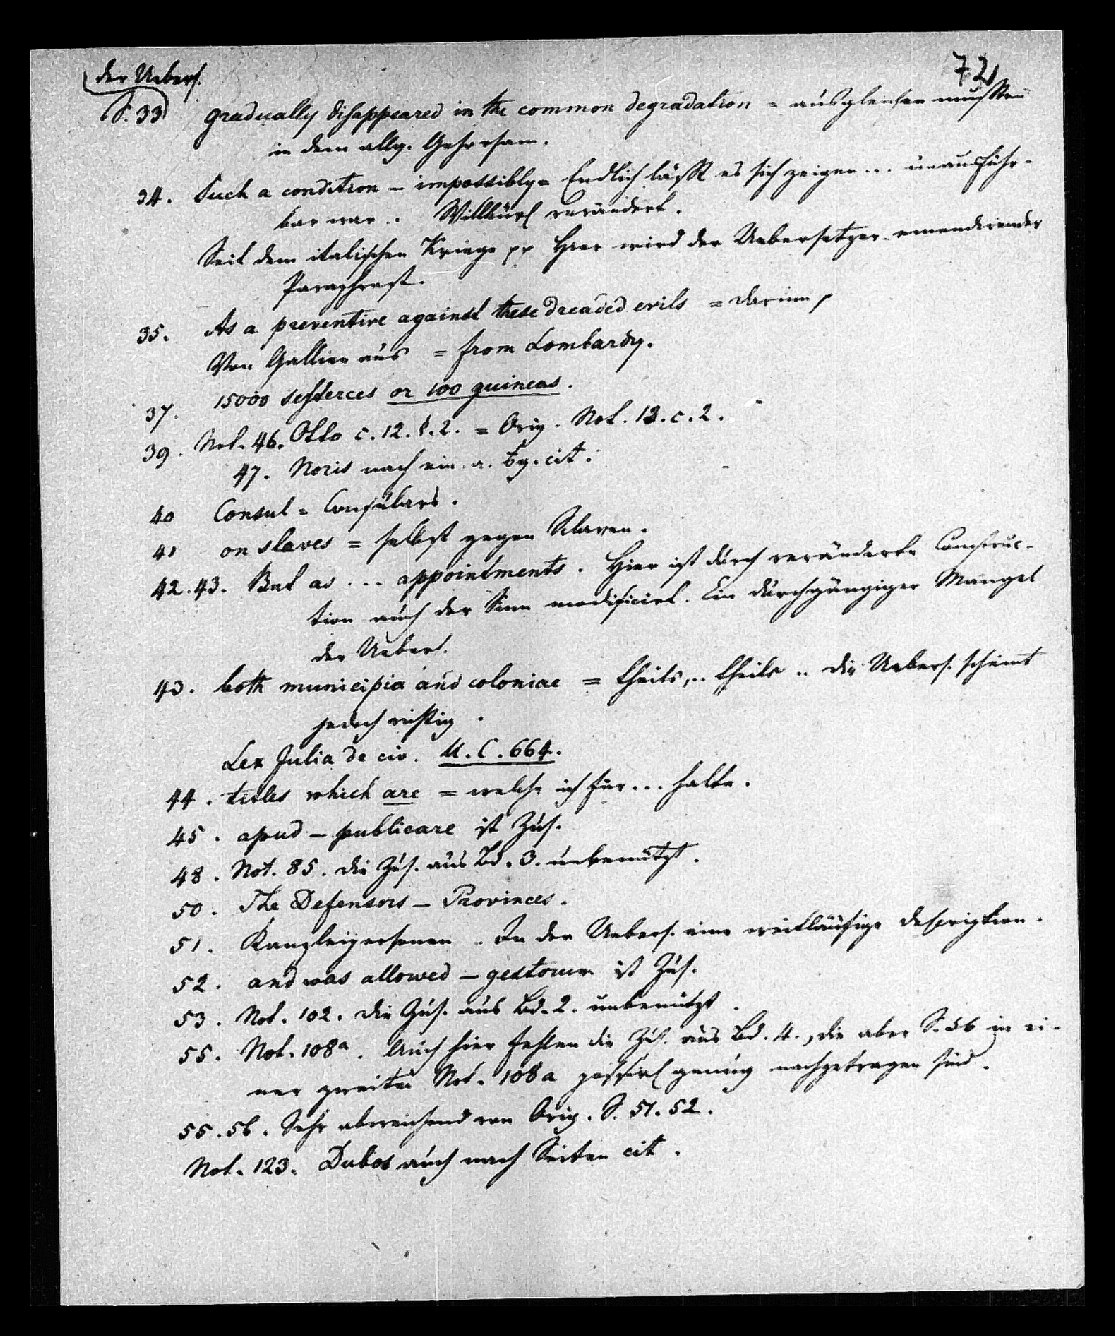 der Uebers. 72
S. 33 gradually disappeared in the common degradation = ausgleichen mußten
in dem allg. Gehorsam.
34. Such a condition – impossibly = Endlich läßt es sich zeigen ... unausführ-
bar war .. Willkür verändert.
Seit dem italischen Kriege pp Hier wird der Uebersetzer emendirender
Paraphrast.
35. As a preventive against these dreaded evils = darum,
Von Gallien aus = from Lombardy.
37. 15000 sesterces or 100 guineas.
39. Not. 46. Otto c. 12. §. 2. = Orig. Not. 13. c. 2.
47. Noris nach cit.
40 Consul = Consulars.
41 on slaves = selbst gegen Sklaven.
42. 43. But as ... appointments. Hier ist durch veränderte Construc-
tion auch der Sinn modificirt. Ein durchgängiger Mangel
der Uebers.
43. both municipia and coloniae = theils, .. theils .. die Uebers. scheint
jedoch richtig.
Lex Julia de civ. U. C. 664.
44. titles which are = welche ich für ... halte.
45. apud – publicare ist Zus.
48. Not. 85. die Zus. aus Bd. 3. unbenützt.
50. The Defensors – Provinces.
51. Kanzleipersonen .. In der Uebers. eine weitläufige Description.
52. and was allowed – ist Zus.
53. Not. 102. die Zus. aus Bd. 2. unbenützt.
55. Not. 108a. Auch hier fehlen die Zus. aus Bd. 4., die aber S. 56 in ei-
ner zweiten Not. 108a genug nachgetragen sind.
55. 56. Sehr abweichend von Orig. S. 51. 52.
Not. 123. Dubos auch nach Seiten cit.